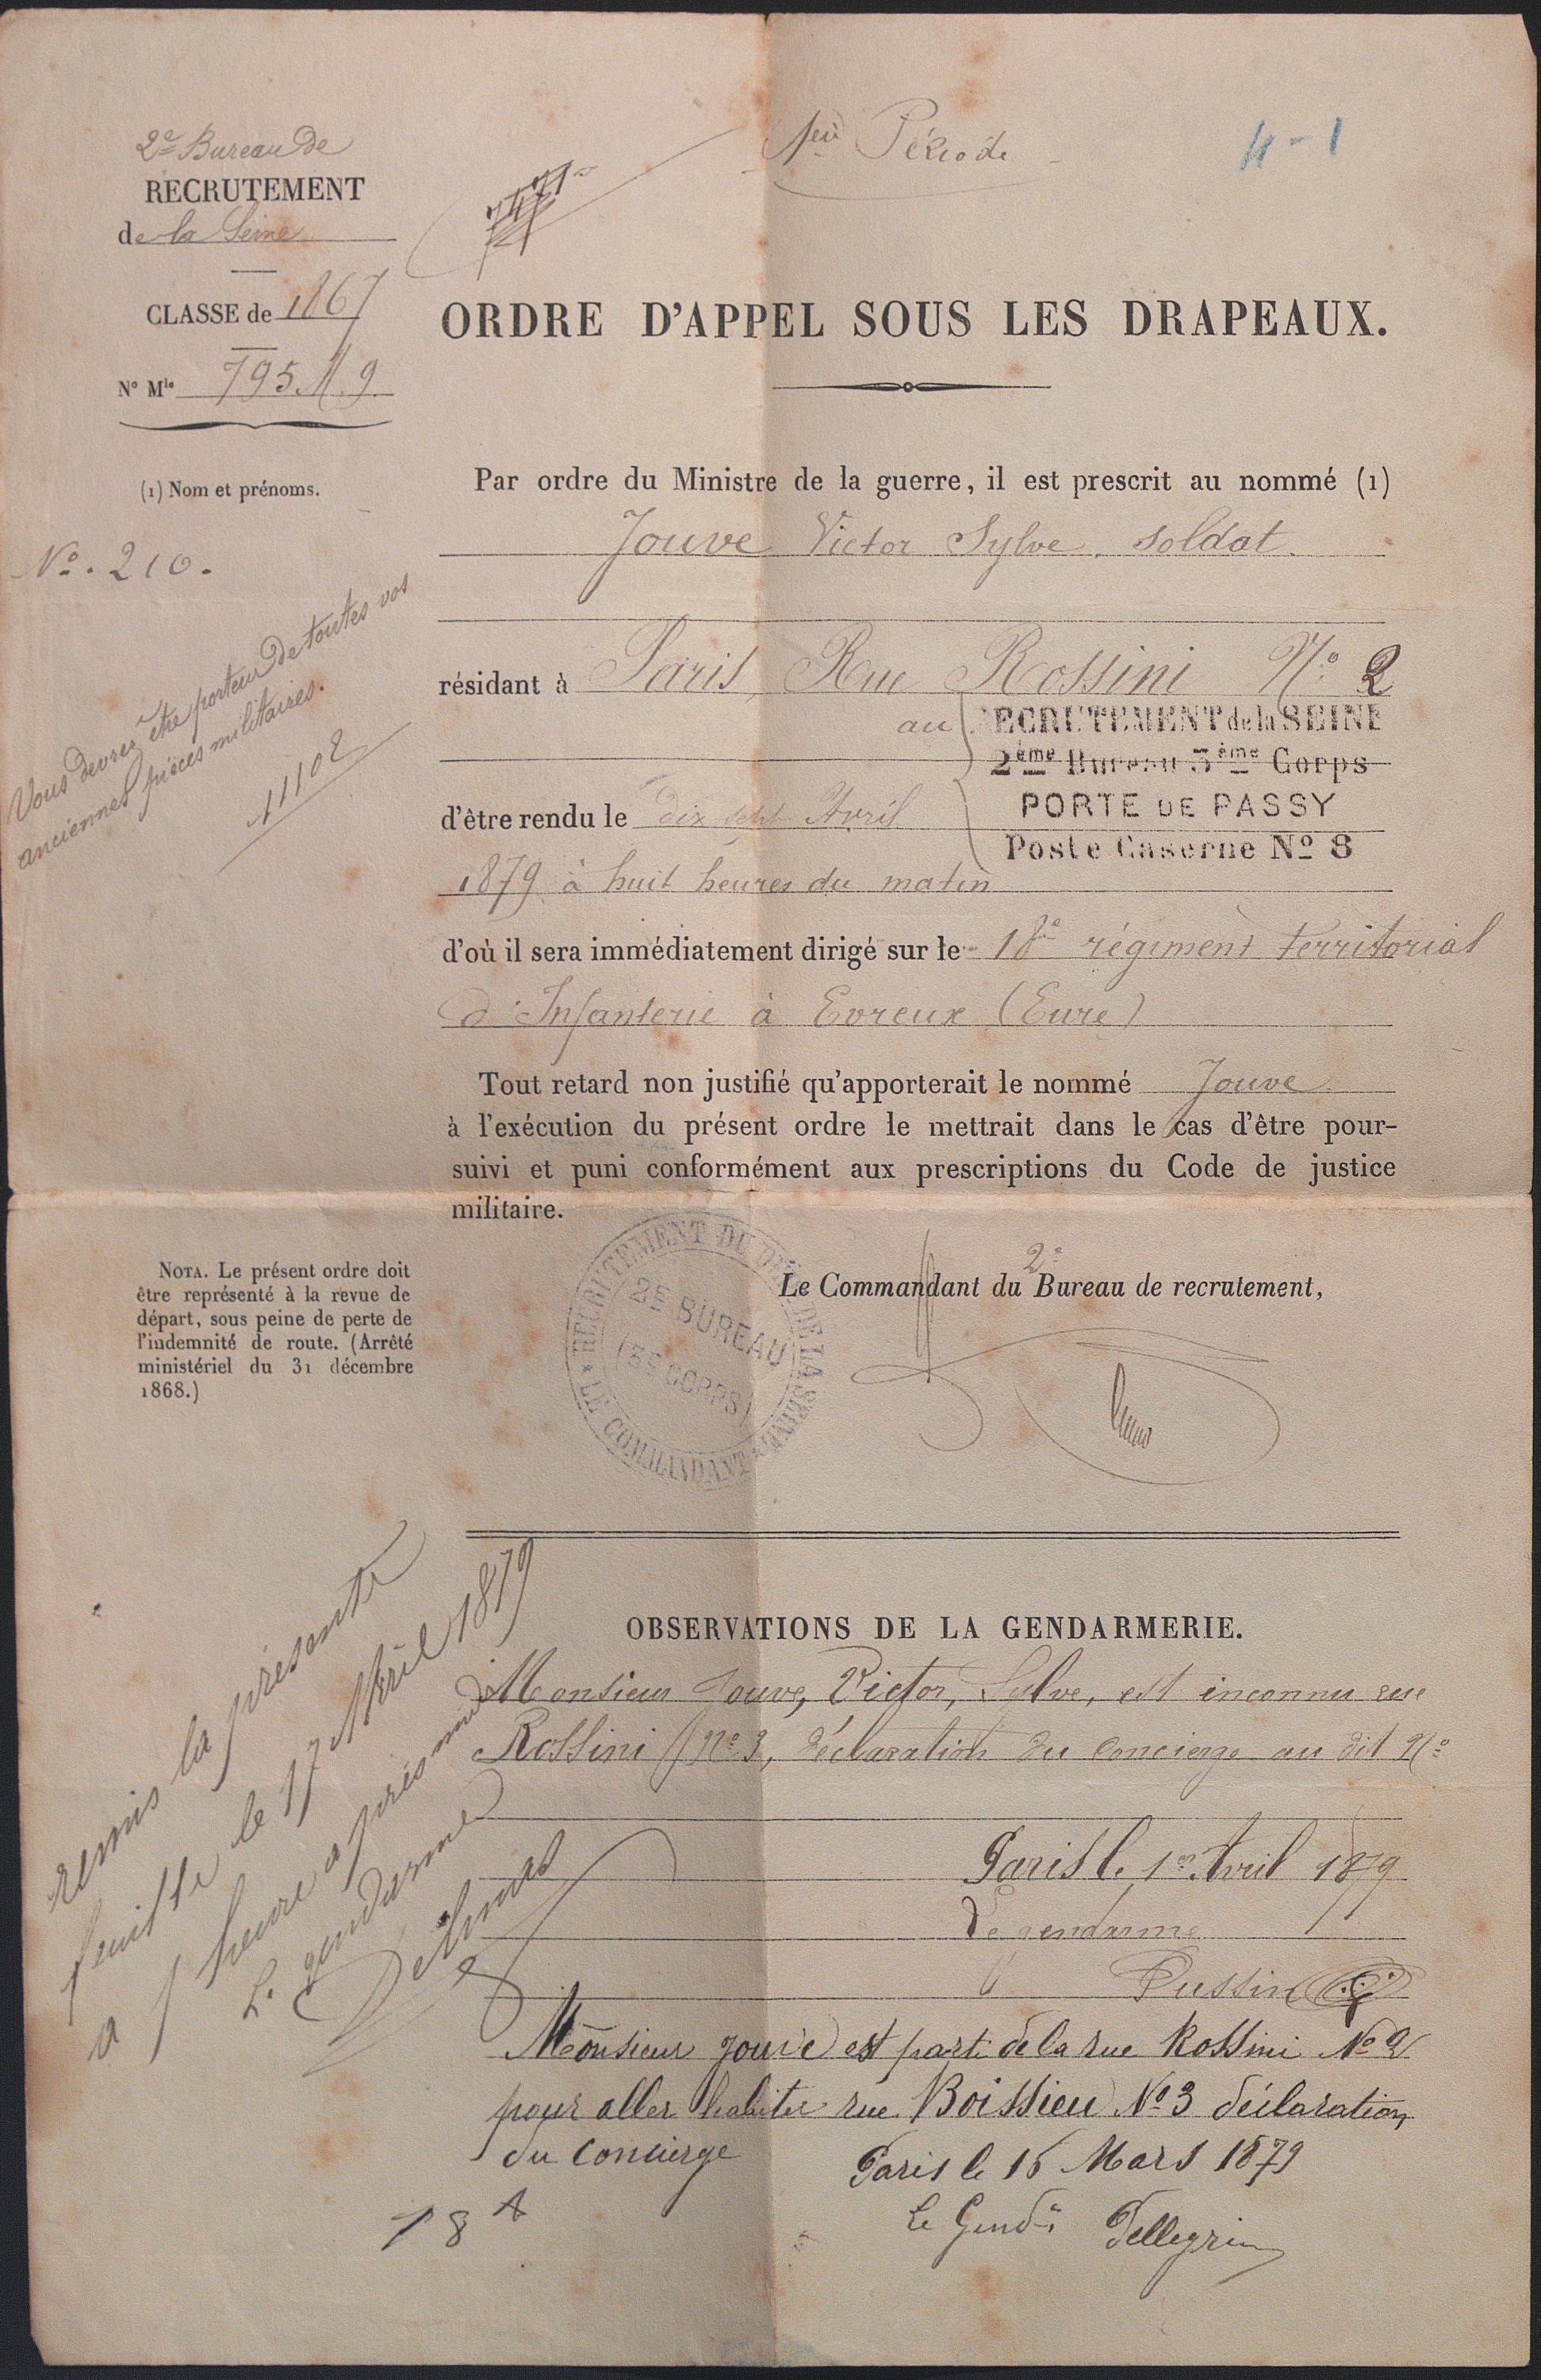 2e Bureau de
RECRUTEMENT
de la Seine
CLASSE de 1867
No Mle 795. M. 9.
(1) Nom et prénoms.
No. 210.
Vous devrez être porteur de toutes vos
anciennes pièces militaires.
11102
1ère Période
4-1
ORDRE D'APPEL SOUS LES DRAPEAUX.
Par ordre du Ministre de la guerre, il est prescrit au nommé (1)
Jouve Victor Sylve. soldat.
résidant à Paris, Rue Rossini No. 2
au RECRUTEMENT de la SEINE
2ème Bureau 3ème Corps
PORTE DE PASSY
d'être rendu le dix sept Avril
Poste Caserne No 8
1879 à huit heures du matin
d'où il sera immédiatement dirigé sur le 18e régiment territorial
d'Infanterie à Evreux (Eure)
Tout retard non justifié qu'apporterait le nommé Jouve
à l'exécution du présent ordre le mettrait dans le cas d'être pour-
suivi et puni conformément aux prescriptions du Code de justice
militaire.
NOTA. Le présent ordre doit
être représenté à la revue de
départ, sous peine de perte de
l'indemnité de route. (Arrêté
ministériel du 31 décembre
1868.)
RECRUTEMENT DU DÉP. DE LA SEINE
2E BUREAU
(3E CORPS)
LE COMMANDANT
Le Commandant du 2e Bureau de recrutement,
OBSERVATIONS DE LA GENDARMERIE.
Monsieur Jouve, Victor, Sylve, est inconnu rue
Rossini no 3, déclaration du concierge au dit No
Paris le 1er Avril 1879
Le gendarme
Pussin
remis la présente
feuille le 17 Avril 1879
a 1 heure après midi
Le gendarme
Delmas
Monsieur Jouve est parti de la rue Rossini No 2
pour aller habiter rue Boissieu No 3 déclaration
du Concierge
Paris le 16 Mars 1879
Le Gendre Pellegrin
18